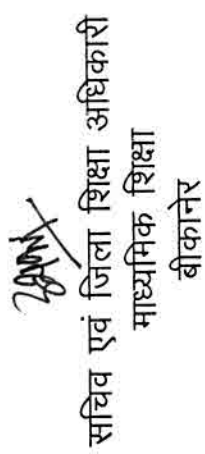 सचिव एवं जिला शिक्षा अधिकारी
माध्यमिक शिक्षा
बीकानेर